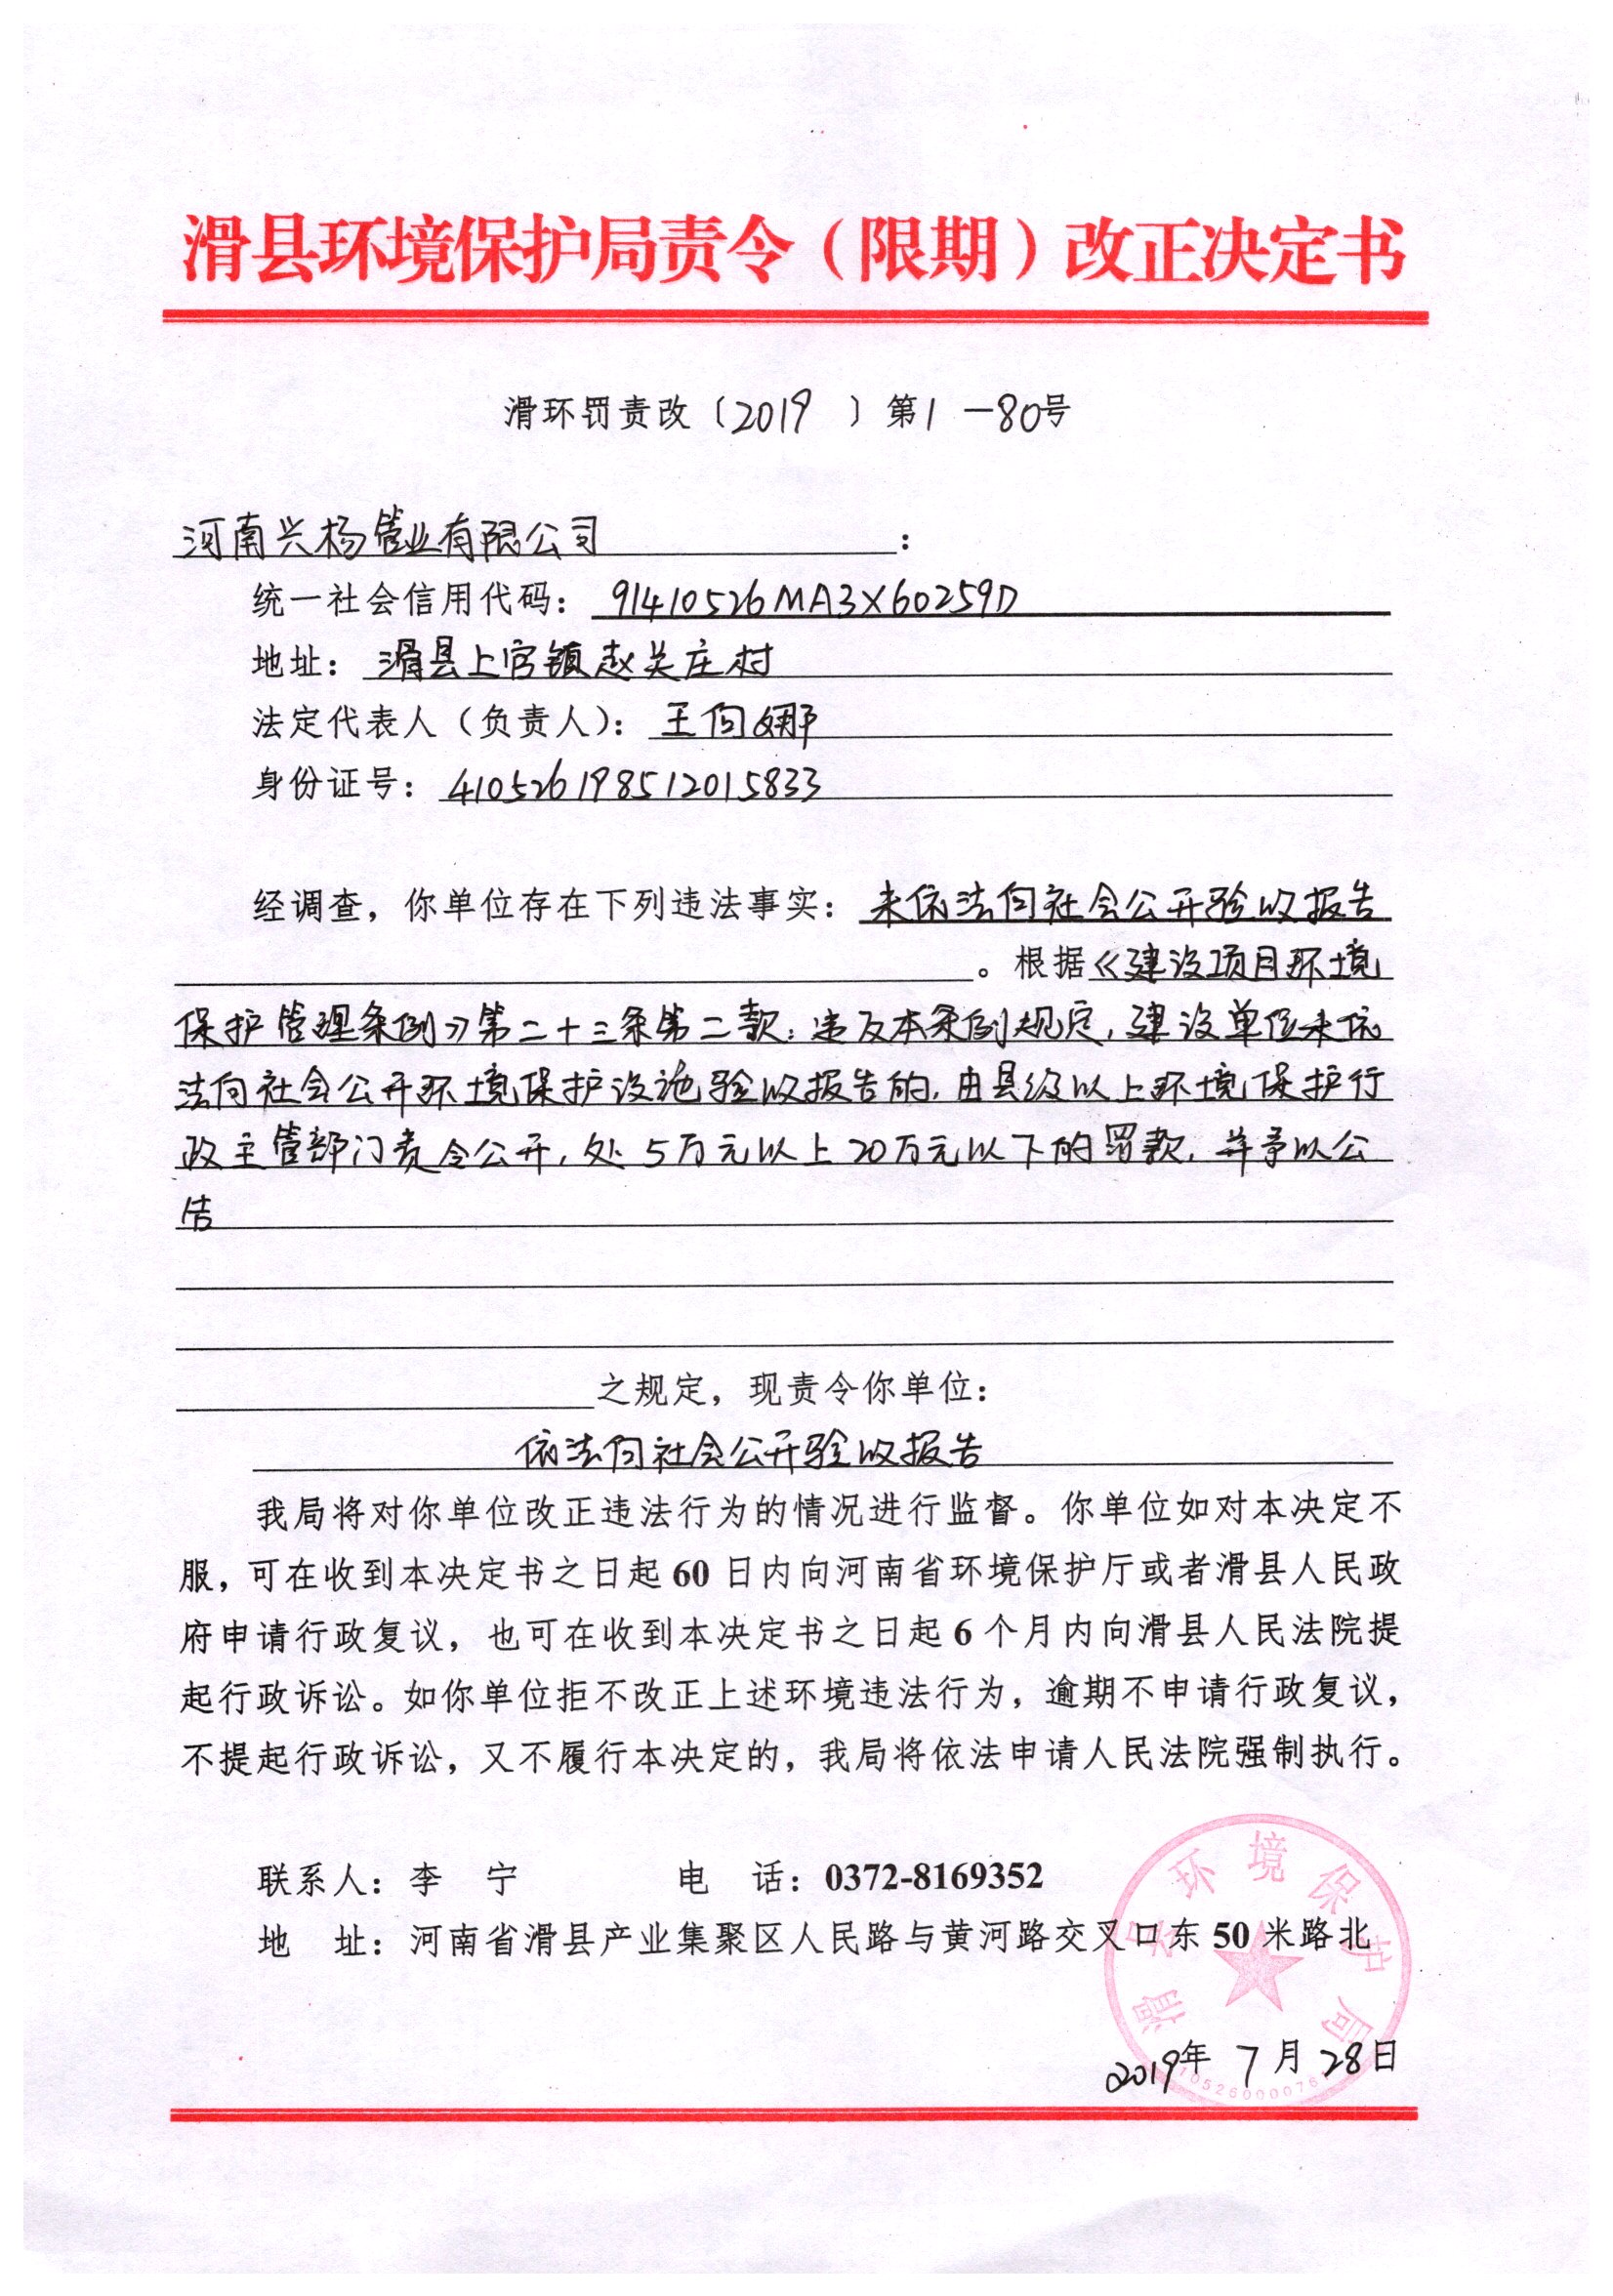 滑县环境保护局责令（限期）改正决定书
滑环罚责改〔2019 〕第1 —80号
河南兴杨管业有限公司：
统一社会信用代码：91410526MA3X60259D
地址：滑县上官镇赵关庄村
法定代表人（负责人）：王向娜
身份证号：410526198512015833
经调查，你单位存在下列违法事实：未依法向社会公开验收报告
。根据《建设项目环境
保护管理条例》第二十三条第二款：违反本条例规定，建设单位未依
法向社会公开环境保护设施验收报告的，由县级以上环境保护行
政主管部门责令公开，处5万元以上20万元以下的罚款，并予以公
告
之规定，现责令你单位：
依法向社会公开验收报告
我局将对你单位改正违法行为的情况进行监督。你单位如对本决定不
服，可在收到本决定书之日起60日内向河南省环境保护厅或者滑县人民政
府申请行政复议，也可在收到本决定书之日起6个月内向滑县人民法院提
起行政诉讼。如你单位拒不改正上述环境违法行为，逾期不申请行政复议，
不提起行政诉讼，又不履行本决定的，我局将依法申请人民法院强制执行。
联系人：李 宁 电 话：0372-8169352
地 址：河南省滑县产业集聚区人民路与黄河路交叉口东50米路北
滑县环境保护局
2019年 7月 28日